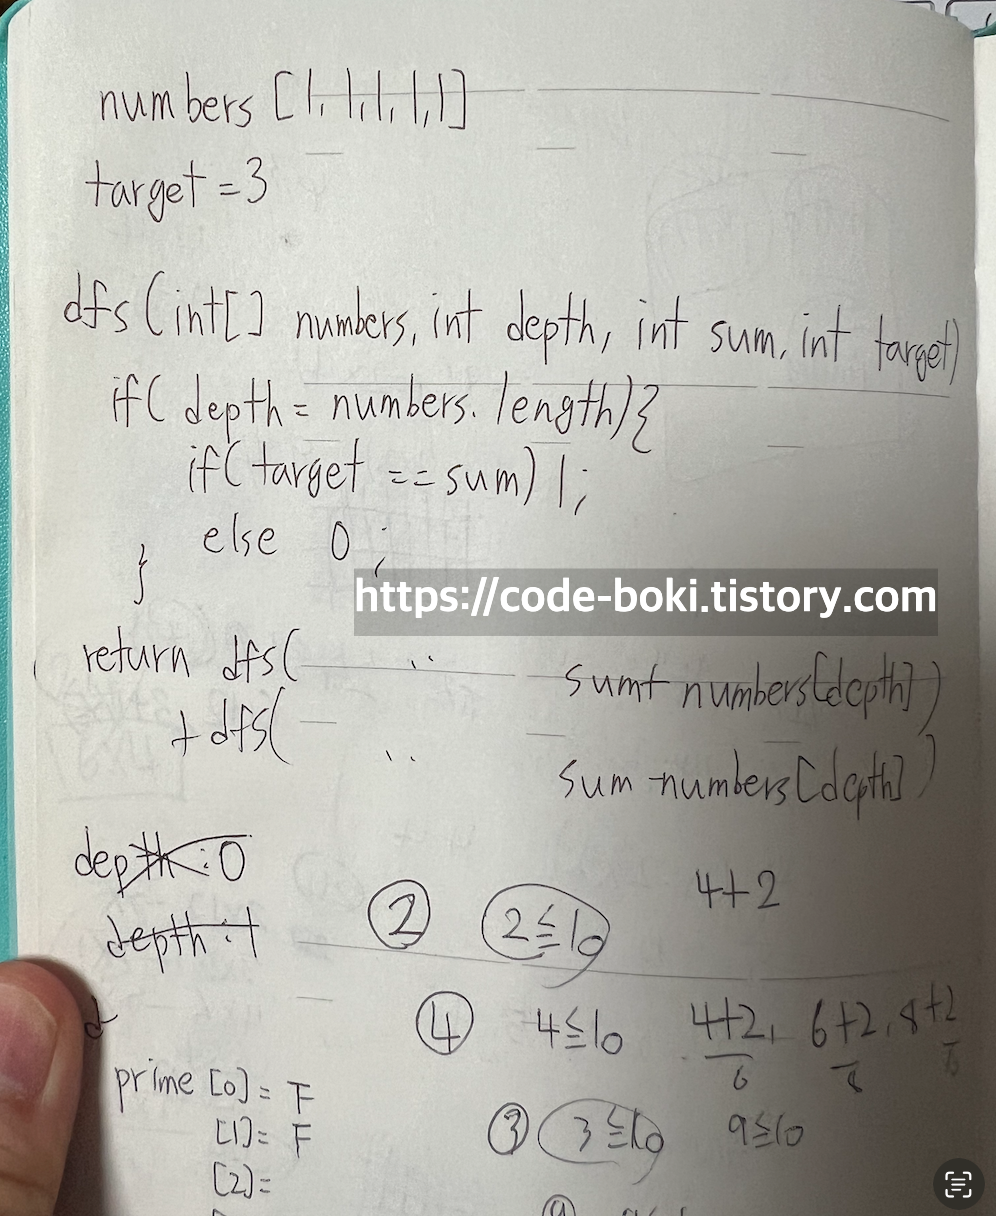 numbers [1, 1, 1, 1, 1]
target = 3
dfs (int[] numbers, int depth, int sum, int target)
if( depth = numbers. length) {
if( target == sum) 1;
else 0 ;
}
https://code-boki.tistory.com
return dfs( .. sum+ numbers[depth] )
+ dfs( .. sum -numbers[depth] )
depth : 0
depth : 1
② 2 ≤ 10 4+2
④ 4 ≤ 10 4+2, 6+2, 8+2
6 8 10
prime [0] = F
[1] = F
[2] =
③ 3 ≤ 10 9 ≤ 10